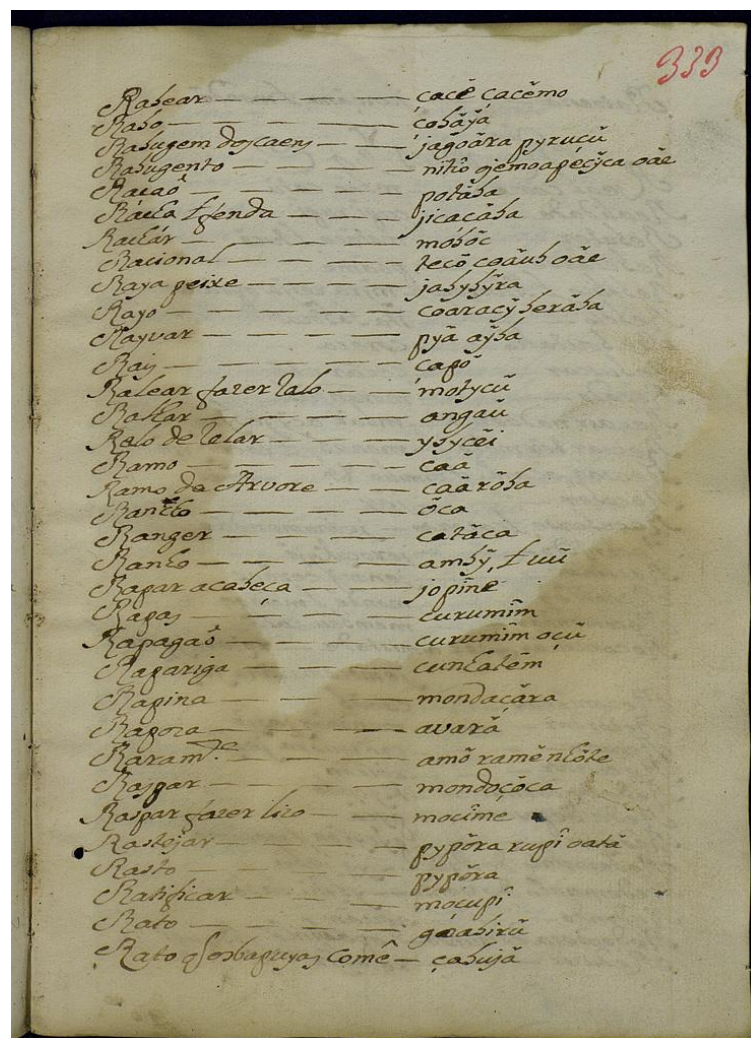 333
Rabear — — — — cacê cacẽmo
Rabo — — — — çobãyá
Rabugem dos caens — — jagoára pyrucũ
Rabugento — — — nitio ojemoapécÿca oáe
Raçaõ — — — — potába
Rácha t fenda — — — jicacába
Rachár — — — — mobóc
Racional — — — — tecó coaúb oáe
Raya peixe — — — jabybÿra
Rayo — — — — coaracÿ berába
Rayvar — — — — pyá aÿba
Rais — — — — çapó
Ralear fazer ralo — — motycú
Ralhar — — — — angaú
Ralo de ralar — — — ybycẽi
Ramo — — — — caá
Ramo da Arvore — — caá róba
Rancho — — — — óca
Ranger — — — — catáca
Ranho — — — — ambÿ, t uũ
Rapar a cabeca — — jopíne
Rapas — — — — curumim
Rapagaõ — — — — curumim oçũ
Rapariga — — — — cunhatẽm
Rapina — — — — mondaçára
Rapoza — — — — avará
Raram.te — — — — amõ ramẽ nhóte
Raspar — — — — mondoçóca
Raspar fazer lizo — — mocíme
Rastejar — — — — pypóra rupî oatá
Rasto — — — — pypóra
Ratificar — — — — mocupî
Rato — — — — goabirũ
Rato q os tapuyas comê — çabujá